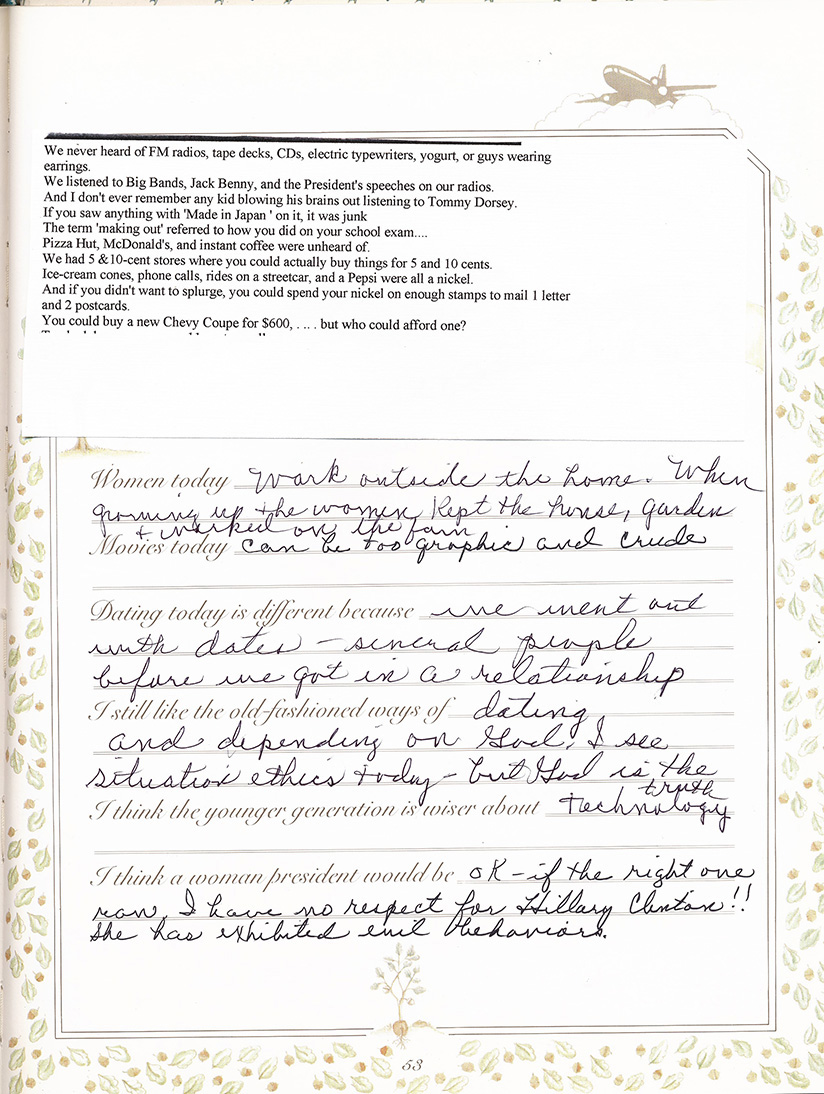 We never heard of FM radios, tape decks, CDs, electric typewriters, yogurt, or guys wearing
earrings.
We listened to Big Bands, Jack Benny, and the President's speeches on our radios.
And I don't ever remember any kid blowing his brains out listening to Tommy Dorsey.
If you saw anything with 'Made in Japan ' on it, it was junk
The term 'making out' referred to how you did on your school exam....
Pizza Hut, McDonald's, and instant coffee were unheard of.
We had 5 &10-cent stores where you could actually buy things for 5 and 10 cents.
Ice-cream cones, phone calls, rides on a streetcar, and a Pepsi were all a nickel.
And if you didn't want to splurge, you could spend your nickel on enough stamps to mail 1 letter
and 2 postcards.
You could buy a new Chevy Coupe for $600, . .. . but who could afford one?
Women today work outside the home. When
growing up the women kept the house, garden
+ worked on the farm
Movies today can be too graphic and crude
Dating today is different because we went out
with dates - several people
before we got in a relationship
I still like the old-fashioned ways of dating
and depending on God. I see
situation ethics today - but God is the
truth
I think the younger generation is wiser about technology
I think a woman president would be OK - if the right one
ran. I have no respect for Hillary Clinton!!
She has exhibited evil behaviors.
53